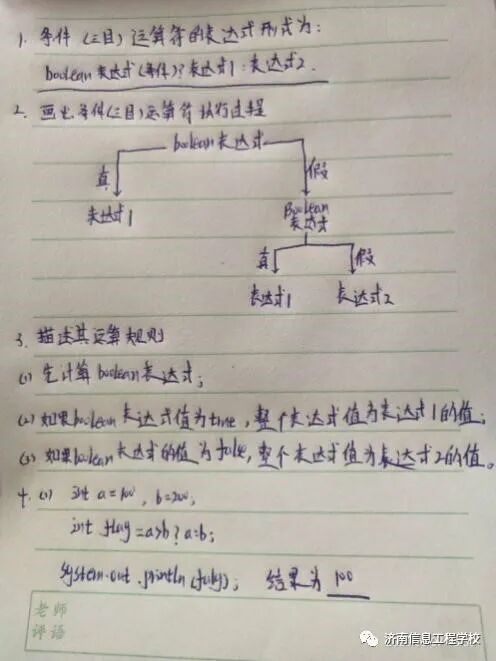 1. 条件(三目)运算符的表达式形式为:
boolean 表达式(条件)?表达式1:表达式2.
2. 画出条件(三目)运算符执行过程
boolean表达式
真
假
表达式1
Boolean
表达式
真
假
表达式1
表达式2
3. 描述其运算规则
(1) 先计算boolean表达式;
(2) 如果boolean表达式值为true,整个表达式值为表达式1的值;
(3) 如果boolean表达式的值为false,整个表达式值为表达式2的值。
4. (1) int a=100, b=200;
int flag=a>b?a:b;
System.out.println( ); 结果为 100
老师
评语
济南信息工程学校